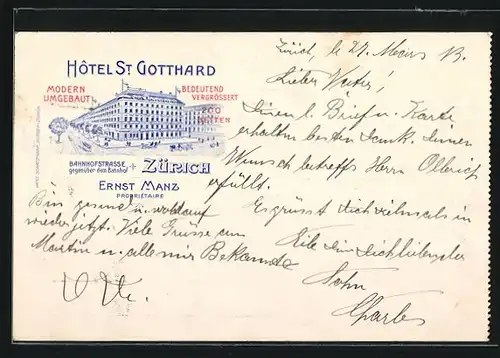 HÔTEL ST GOTTHARD
MODERN UMGEBAUT
BEDEUTEND VERGRÖSSERT
200 BETTEN
BAHNHOFSTRASSE
gegenüber dem Bahnhof
ZÜRICH
ERNST MANZ
PROPRIÉTAIRE
Zürich, le 27. März 13.
Lieber Vater!
Deinen l. Brief u. Karte
erhalten besten Dank. Deinen
Wunsch betreffs Herrn Olbrich
erfüllt.
Es grüsst Dich vielmals in
Eile Dein Dich liebender
Sohn
Charles
Bin gesund u. wohlauf
wieder jetzt. Viele Grüsse an
Martin u. alle mir Bekannte